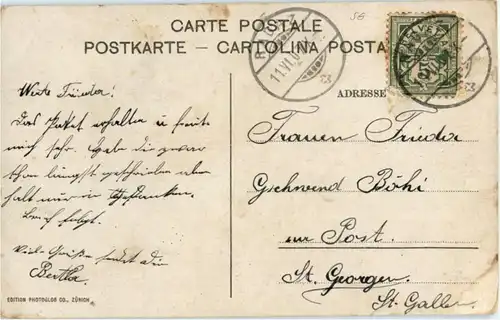 CARTE POSTALE
POSTKARTE – CARTOLINA POSTA
5G
11.VI.0
ADRESSE
Werte Frieda!
Das Paket erhalten u freute
mich sehr. Habe dir zwar
schon längst geschrieben aber
halt nur in Gedanken.
Brief folgt.
Viel Grüße sendet dir
Bertha.
Frauen Frieda
Gschwend Böhi
zur Post.
St. Georgen.
St. Gallen.
EDITION PHOTOGLOB CO., ZÜRICH